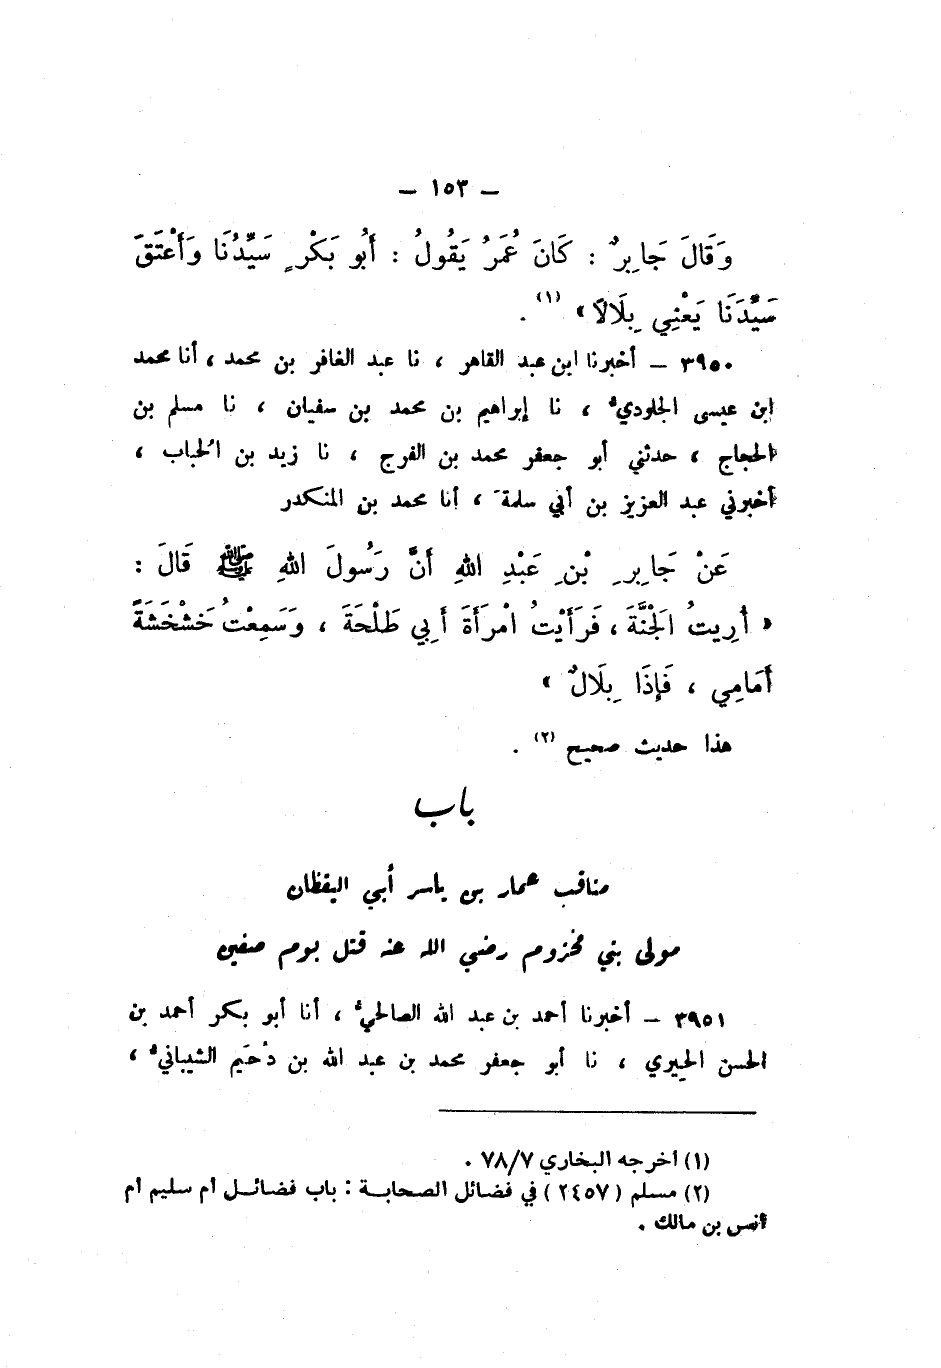 — ١٥٣ —
وَقَالَ جَابِرٌ : كَانَ عُمَرُ يَقُولُ : أَبُو بَكْرٍ سَيِّدُنَا وَأَعْتَقَ
سَيِّدَنَا يَعْنِي بِلَالًا » (١) .
٣٩٥٠ — أخبرنا ابن عبد القاهر ، نا عبد الغافر بن محمد ، أنا محمد
ابن عيسى الجلوديُّ ، نا إبراهيم بن محمد بن سفيان ، نا مسلم بن
الحجاج ، حدثني أبو جعفر محمد بن الفرج ، نا زيد بن الحُباب ،
أخبرني عبد العزيز بن أبي سلمةَ ، أنا محمد بن المنكدر
عَنْ جَابِرِ بْنِ عَبْدِ اللهِ أَنَّ رَسُولَ اللهِ ﷺ قَالَ :
« أُرِيتُ الجَنَّةَ ، فَرَأَيْتُ امْرَأَةَ أَبِي طَلْحَةَ ، وَسَمِعْتُ خَشْخَشَةً
أَمَامِي ، فَإِذَا بِلَالٌ »
هذا حديث صحيح (٢) .
باب
مناقب عمار بن ياسر أبي اليقظان
مولى بني مخزوم رضي الله عنه قتل يوم صفين
٣٩٥١ — أخبرنا أحمد بن عبد الله الصالحيُّ ، أنا أبو بكر أحمد بن
الحسن الحِيري ، نا أبو جعفر محمد بن عبد الله بن دُحَيم الشيبانيُّ ،
(١) أخرجه البخاري ٧٨/٧ .
(٢) مسلم ( ٢٤٥٧ ) في فضائل الصحابة : باب فضائل أم سليم أم
أنس بن مالك .